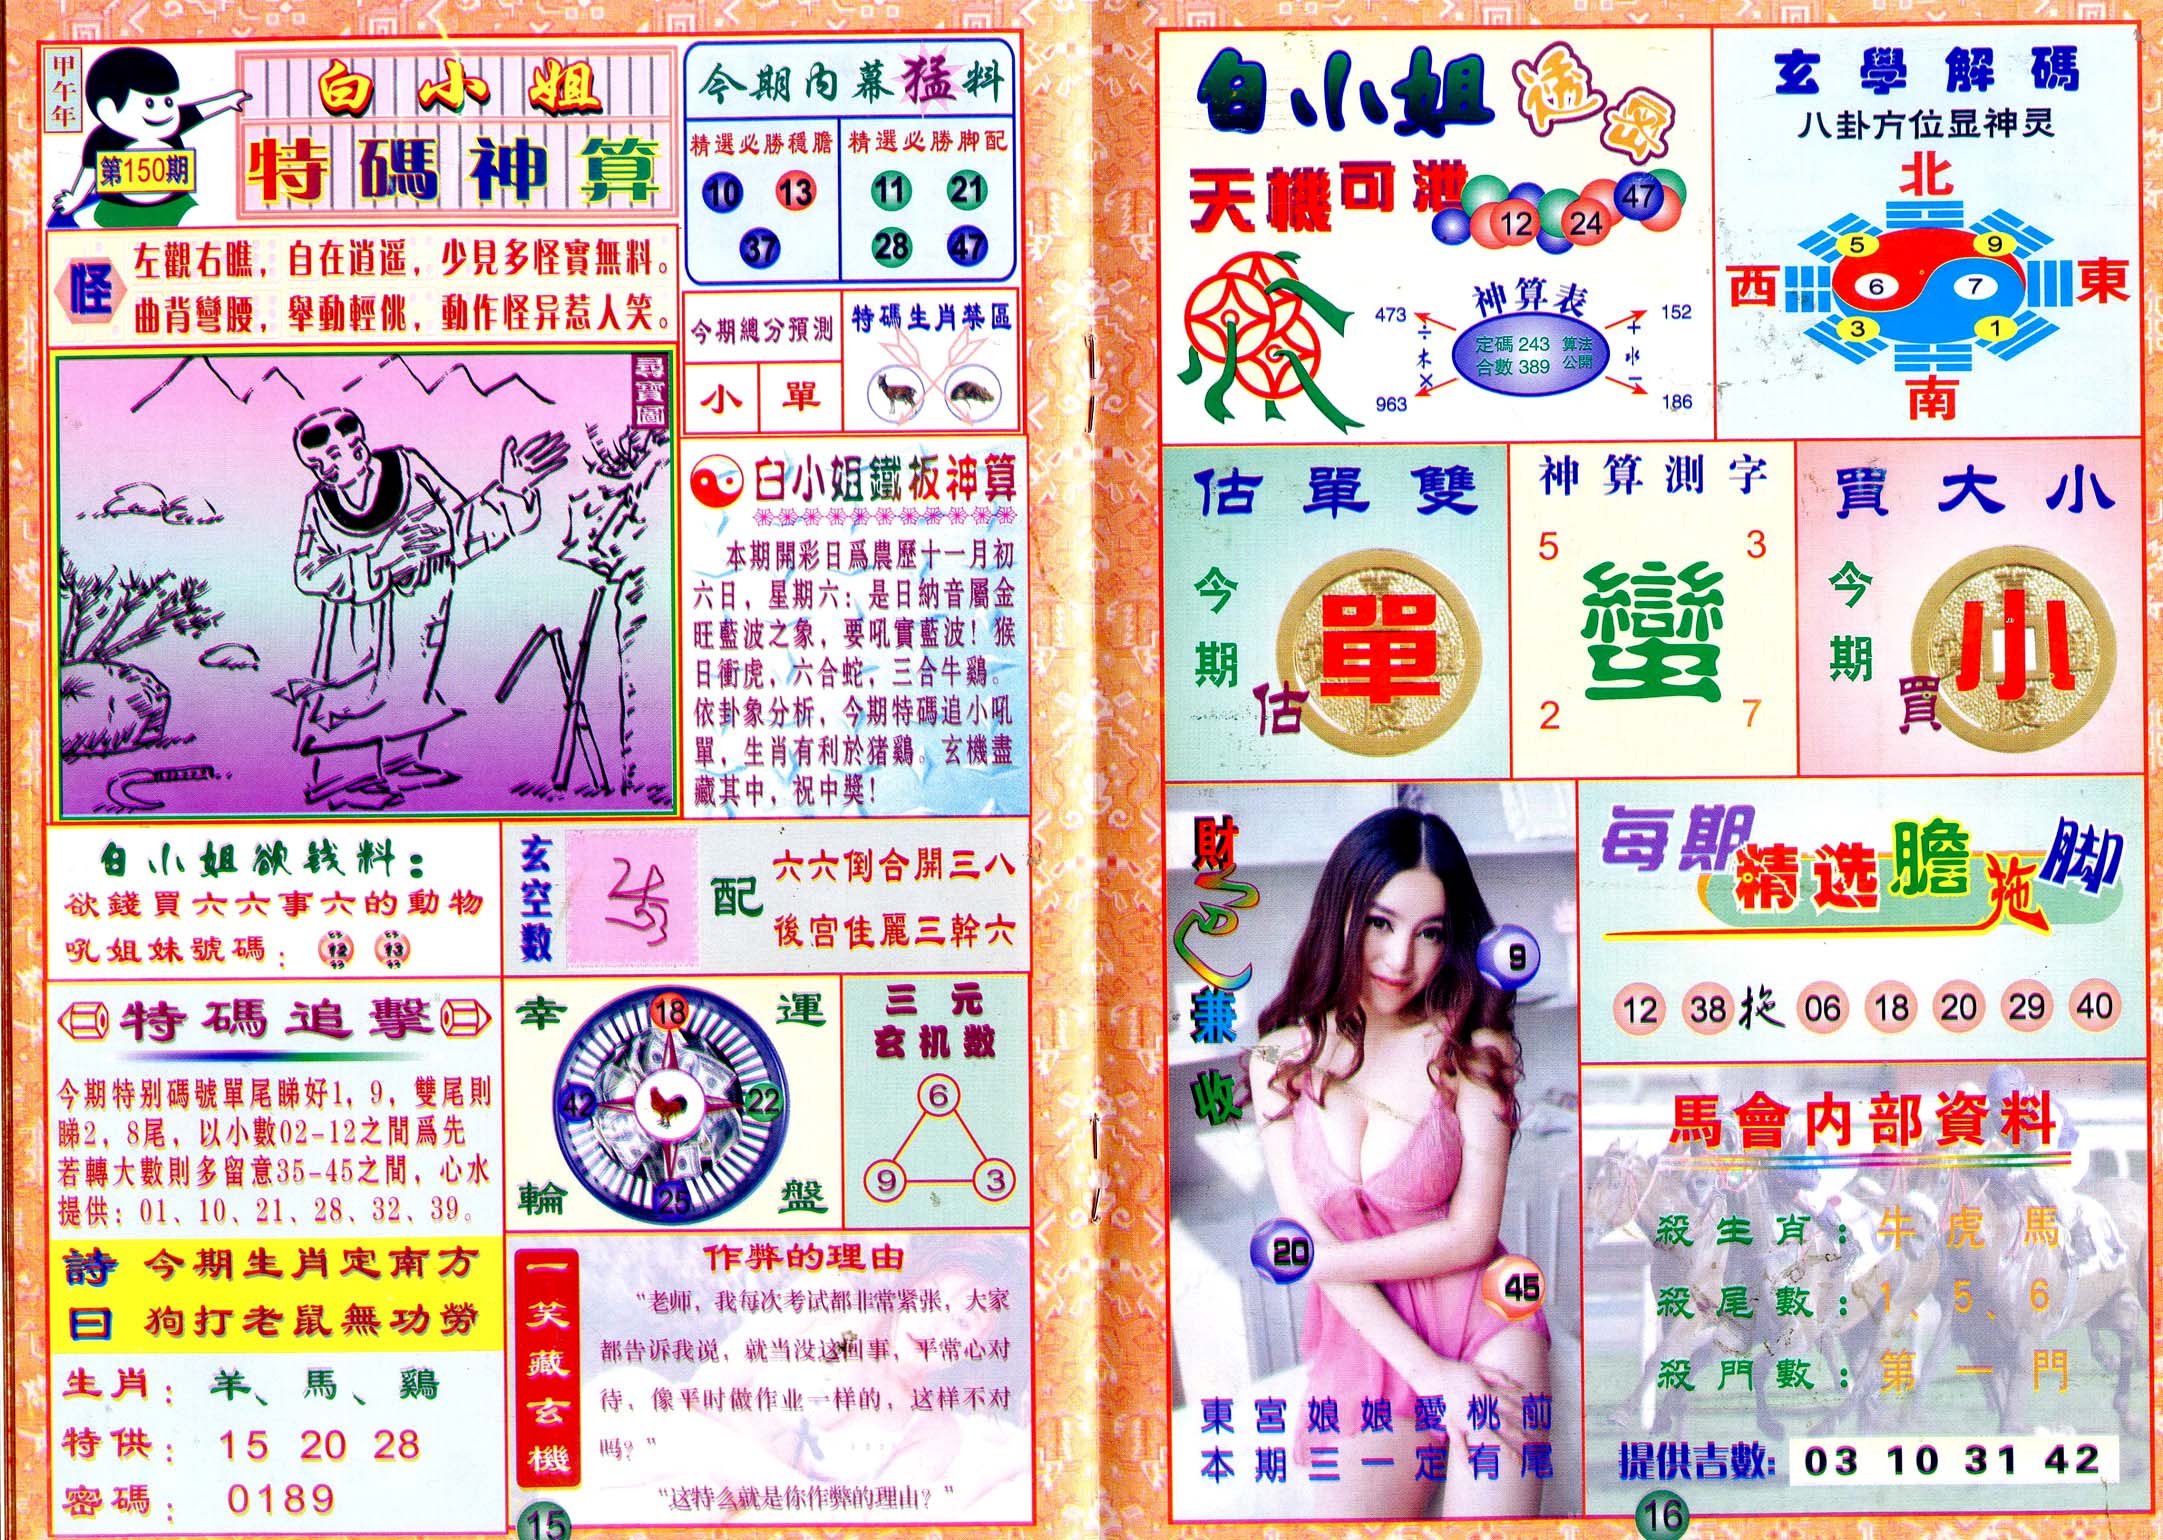 甲午年
第150期
白小姐
特碼神算
怪
左觀右瞧，自在逍遥，少見多怪實無料。
曲背彎腰，舉動輕佻，動作怪异惹人笑。
尋寶圖
今期内幕猛料
精選必勝穩膽
10 13
37
精選必勝脚配
11 21
28 47
今期總分預測
小 單
特碼生肖禁區
白小姐鐵板神算
本期開彩日爲農歷十一月初
六日，星期六；是日納音屬金
旺藍波之象，要吼實藍波！猴
日衝虎，六合蛇，三合牛鷄。
依卦象分析，今期特碼追小吼
單，生肖有利於猪鷄。玄機盡
藏其中，祝中獎！
白小姐欲钱料：
欲錢買六六事六的動物
吼姐妹號碼： 12 13
玄空数
配
六六倒合開三八
後宫佳麗三幹六
特碼追擊
今期特别碼號單尾睇好1，9，雙尾則
睇2，8尾，以小數02-12之間爲先
若轉大數則多留意35-45之間，心水
提供：01、10、21、28、32、39。
幸運輪盤
18
42 22
25
三元
玄机数
6
9 3
詩曰
今期生肖定南方
狗打老鼠無功勞
生肖： 羊、馬、鷄
特供： 15 20 28
密碼： 0189
一笑藏玄機
作弊的理由
“老师，我每次考试都非常紧张，大家
都告诉我说，就当没这回事，平常心对
待，像平时做作业一样的，这样不对
吗？”
“这特么就是你作弊的理由？”
15
白小姐透密
天機可泄
12 24 47
神算表
473 152
÷ 木 × + 水 −
定碼 243 算法
合數 389 公開
963 186
玄學解碼
八卦方位显神灵
北
5 9
西 6 7 東
3 1
南
估單雙
今期
估
單
神算測字
5 3
蠻
2 7
買大小
今期
買
小
財色兼收
9
20
45
東宮娘娘愛桃前
本期三一定有尾
每期精选膽拖脚
12 38 拖 06 18 20 29 40
馬會内部資料
殺生肖：牛 虎 馬
殺尾數：1、5、6
殺門數：第一門
提供吉數： 03 10 31 42
16